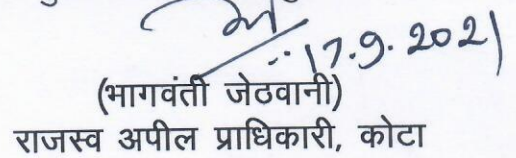 17.9.2021
(भागवंती जेठवानी)
राजस्व अपील प्राधिकारी, कोटा